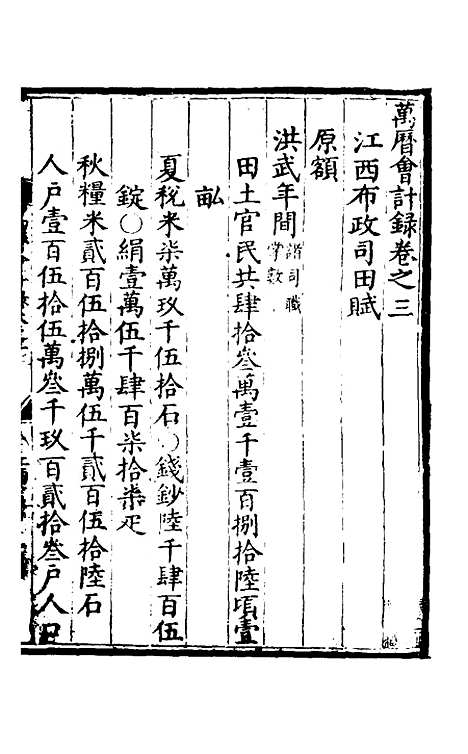 萬曆會計錄卷之三
江西布政司田賦
原額
洪武年間諸司職掌數
田土官民共肆拾叁萬壹千壹百捌拾陸頃壹
畝
夏稅米柒萬玖千伍拾石○錢鈔陸千肆百伍
錠○絹壹萬伍千肆百柒拾柒疋
秋糧米貳百伍拾捌萬伍千貳百伍拾陸石
人戶壹百伍拾伍萬叁千玖百貳拾叁戶人口